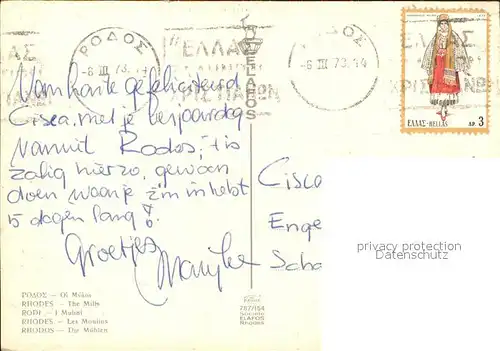 ΡΟΔΟΣ
-6 III 73.14
"ΕΛΛΑΣ
ΧΡΙΣΤΙΑΝΩΝ
ELAFOS
-6 III 73.14
ΕΛΛΑΣ
ΕΛΛΑΣ-HELLAS ΔΡ. 3
Van harte gefeliciteerd
Cisca, met je verjaardag
vanuit Rodos, 't is
zalig hierzo, gewoon
doen waar je zin in hebt
5 dagen lang!
Groetjes
Marijke
Cisca
Enge
Scha
privacy protection
watermark
ΡΟΔΟΣ — Οἱ Μύλοι
RHODES — The Mills
RODI — I Mulini
RHODES — Les Moulins
RHODOS — Die Mühlen
ELAFOS
Rhodes